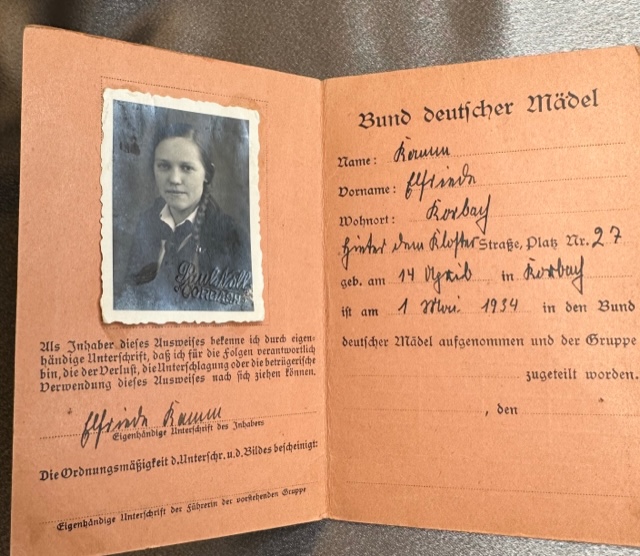 Paul Voll
KORBACH
Als Inhaber dieses Ausweises bekenne ich durch eigen-
händige Unterschrift, daß ich für die Folgen verantwortlich
bin, die der Verlust, die Unterschlagung oder die betrügerische
Verwendung dieses Ausweises nach sich ziehen können.
Elfriede Kamm
Eigenhändige Unterschrift des Inhabers
Die Ordnungsmäßigkeit d. Unterschr. u. d. Bildes bescheinigt:
Eigenhändige Unterschrift der Führerin der vorstehenden Gruppe
Bund deutscher Mädel
Name: Kamm
Vorname: Elfriede
Wohnort: Korbach
Hinter dem Kloster Straße, Platz Nr. 27
geb. am 14 April in Korbach
ist am 1 Mai 1934 in den Bund
deutscher Mädel aufgenommen und der Gruppe
zugeteilt worden.
, den